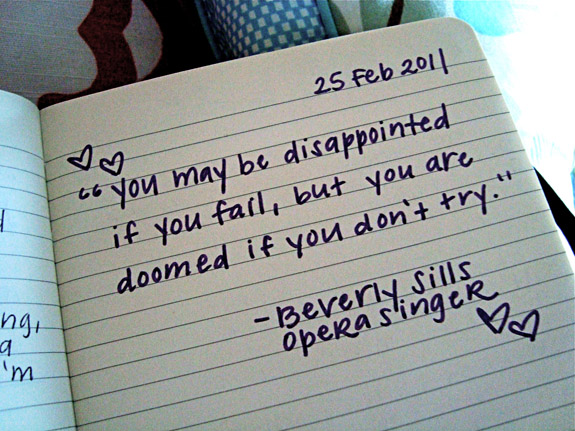 25 Feb 2011
"you may be disappointed
if you fail, but you are
doomed if you don't try."
-Beverly Sills
Opera singer
ng,
a
'm